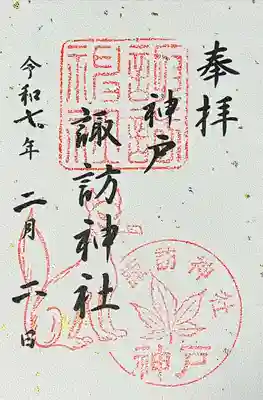 奉拝
神戸
諏訪神社
令和七年
二月二日
諏訪神社
神戸